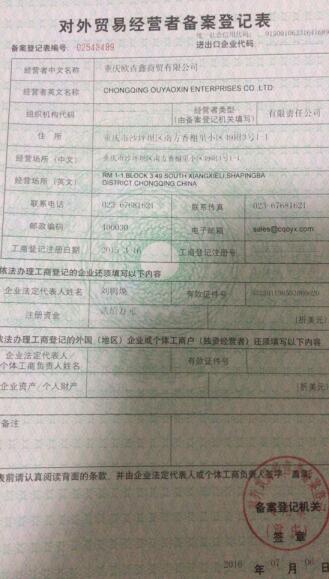 对外贸易经营者备案登记表
备案登记表编号: 02548489
进出口企业代码:
经营者中文名称 重庆欧吉鑫商贸有限公司
经营者英文名称 CHONGQING OUYAOXIN ENTERPRISES CO.,LTD
组织机构代码 经营者类型 (由备案登记机关填写) 有限责任公司
住 所 重庆市沙坪坝区南方香榭里小区49附3号1-1
经营场所(中文) 重庆市沙坪坝区南方香榭里小区49附3号1-1
经营场所(英文) RM 1-1,BLOCK 3,49 SOUTH XIANGXIELI,SHAPINGBA
DISTRICT,CHONGQING,CHINA
联系电话 023-67681621 联系传真 023-67681621
邮政编码 400030 电子邮箱 sales@cqoyx.com
工商登记注册日期 2015-3-16 工商登记注册号
依法办理工商登记的企业还须填写以下内容
企业法定代表人姓名 有效证件号
注册资金 (折美元)
依法办理工商登记的外国(地区)企业或个体工商户(独资经营者)还须填写以下内容
企业法定代表人/
个体工商负责人姓名 有效证件号
企业资产/个人财产 (折美元)
备注
表前请认真阅读背面的条款,并由企业法定代表人或个体工商负责人签字、盖章。
备案登记机关
签 章
2016 年 07 月 06 日